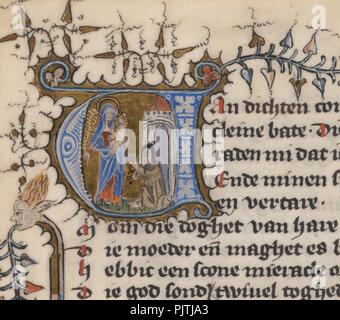 an dichten com
cleine bate. Di
raden mi dat ic
Ende minen s
en vertare
om die doghet van hare
ie moeder en maghet es b
h ebbic een scone mieracle o
ie god sond twivel toghed
PJTJA3